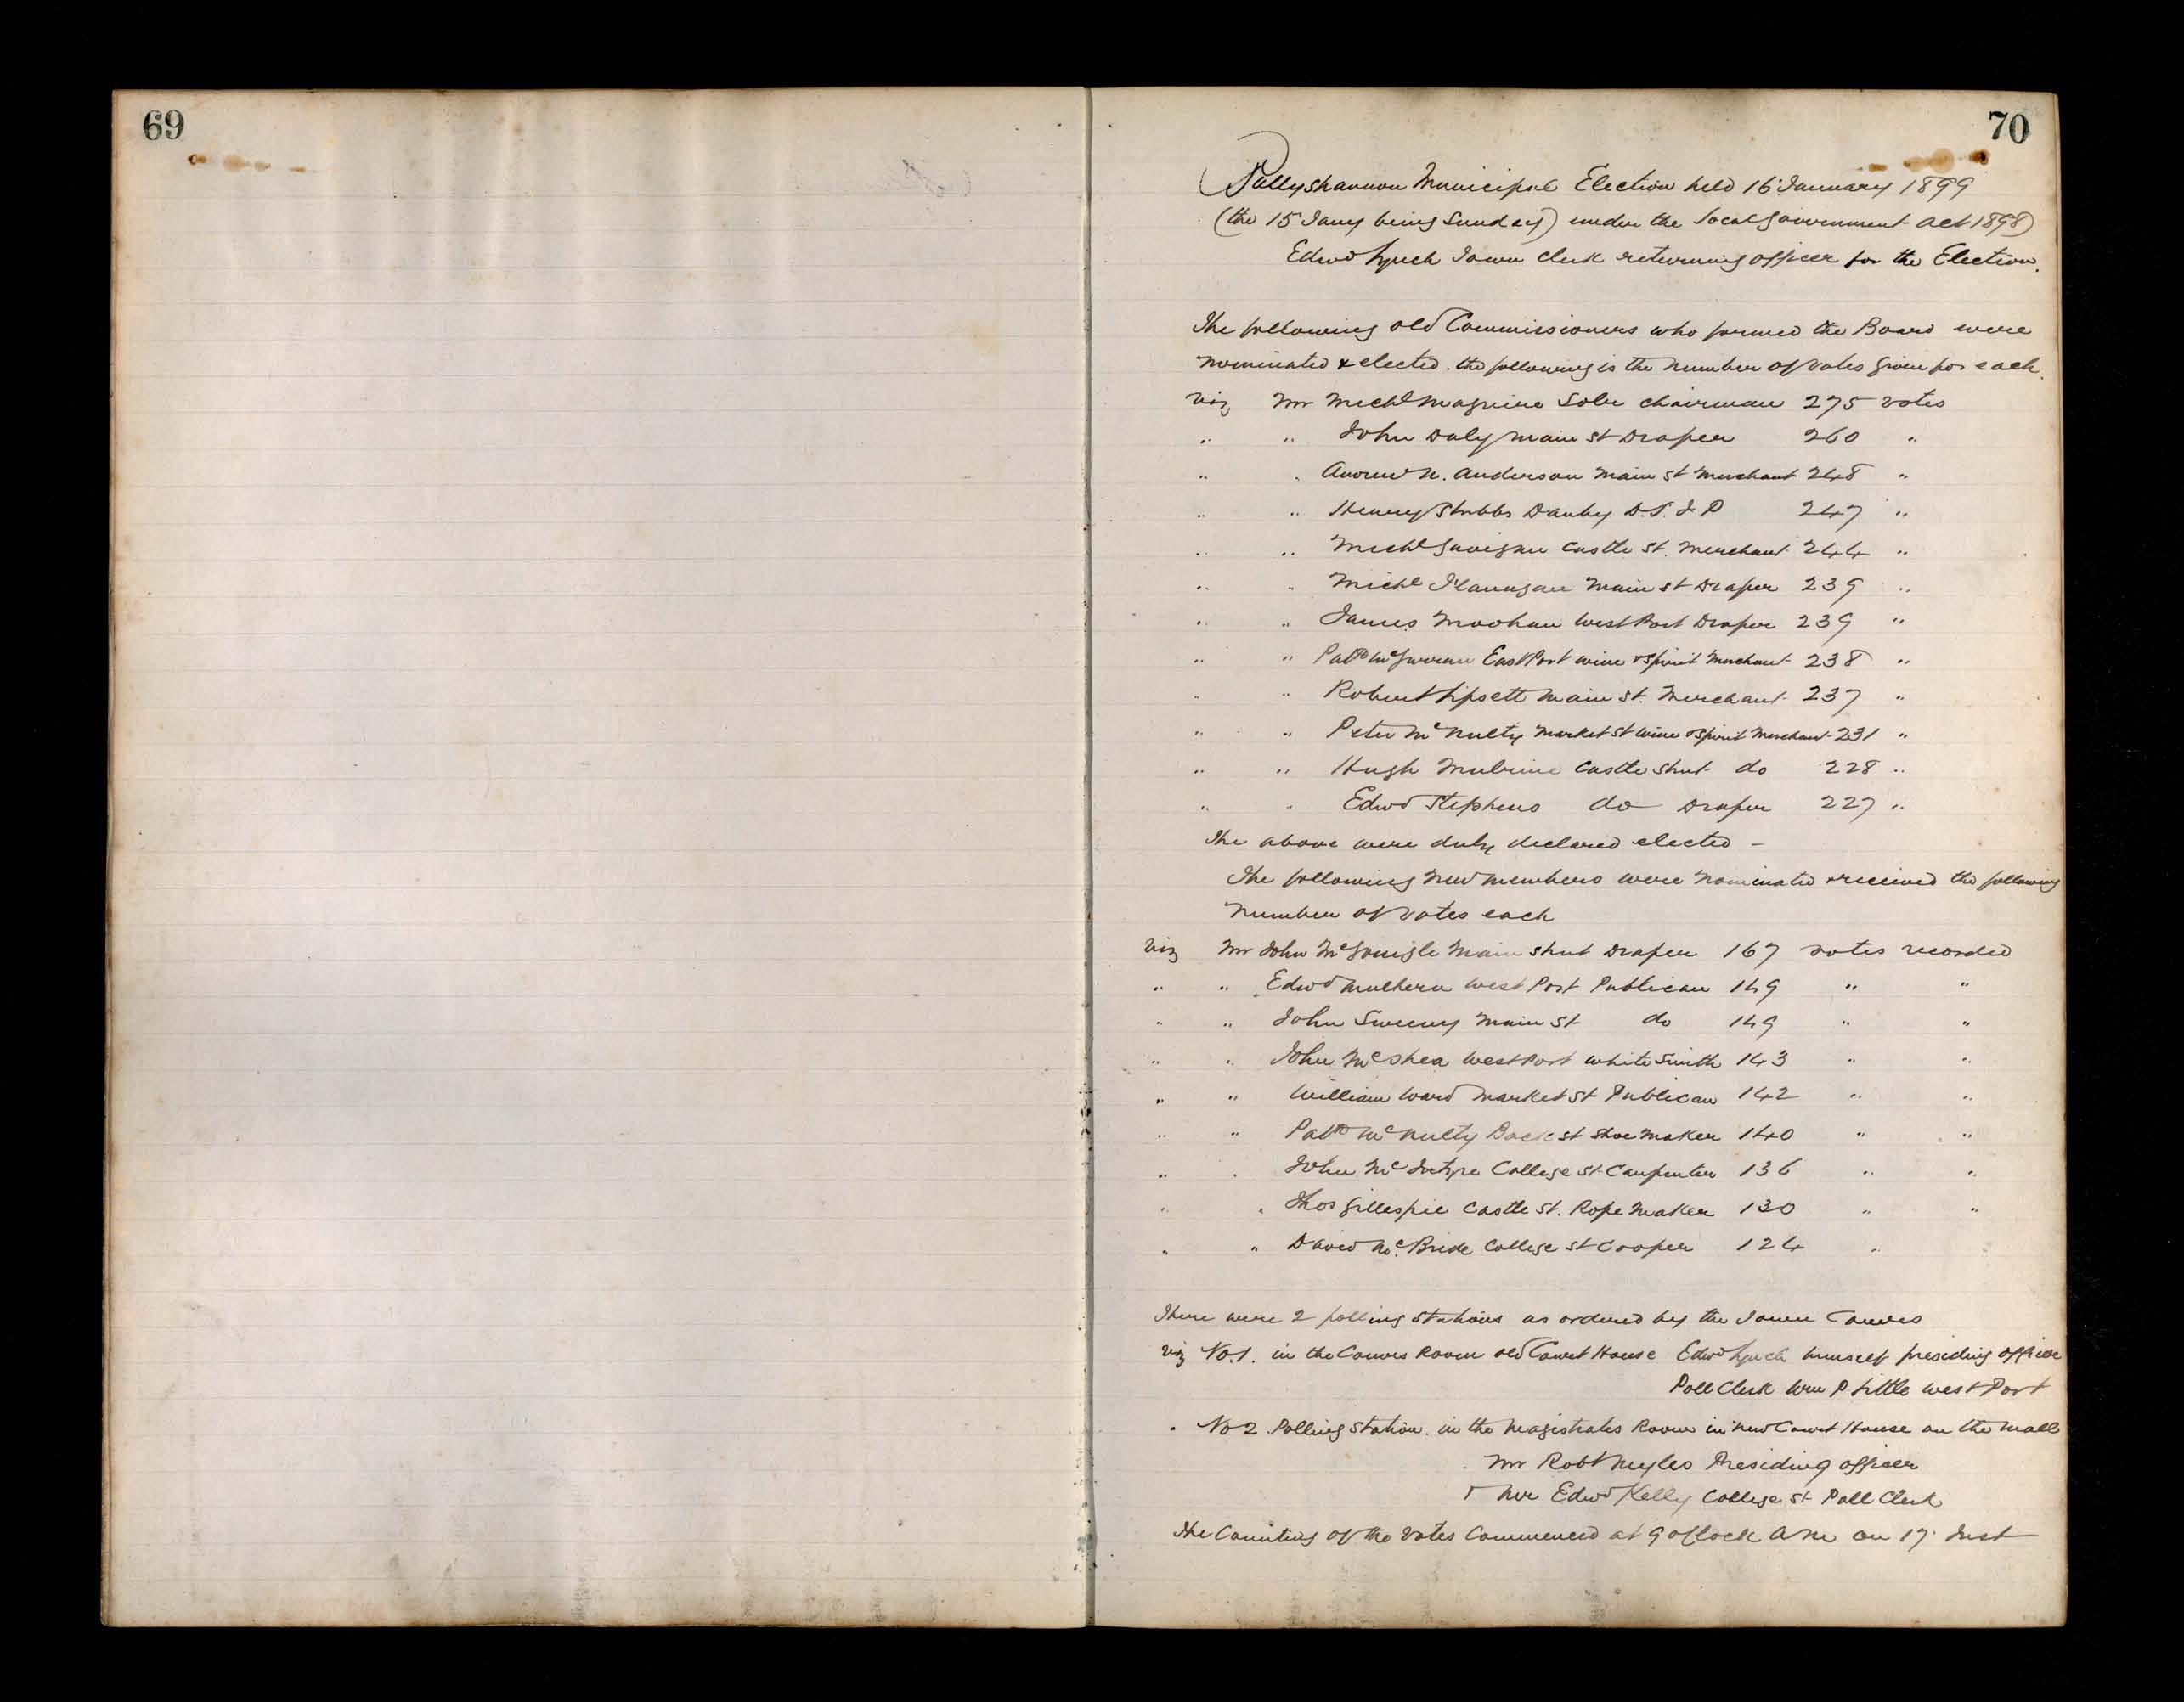 69
70
Ballyshannon Municipal Election held 16 January 1899
(the 15 Jany being Sunday) under the Local Government Act 1898)
Edwd Lynch Town Clerk returning officer for the Election.
The following old Commissioners who formed the Board were
nominated & elected. the following is the number of votes given for each.
viz Mr Michl Maguire Solr Chairman 275 votes
" " John Daly Main St Draper 260 "
" " Andrew N. Anderson Main St Merchant 248 "
" " Henry Stubbs Danby D.L. J P 247 "
" " Michl Gavigan Castle St. Merchant 244 "
" " Michl Flanagan Main St Draper 239 "
" " James Moohan West Port Draper 239 "
" " Patk East Port wine & spirit Merchant 238 "
" " Robert Lipsett Main St. Merchant 237 "
" " Peter McNulty Market St wine & spirit Merchant 231 "
" " Hugh Castle Street do 228 "
" " Edwd Stephens do Draper 227 "
The above were duly declared elected –
The following new members were nominated & received the following
number of votes each
viz Mr John McGonigle Main Street Draper 167 votes recorded
" " Edwd Mulhern West Port Publican 149 " "
" " John Sweeny Main St do 149 " "
" " John McShea West Port White Smith 143 " "
" " William Ward Market St Publican 142 " "
" " Patk McNulty Back St Shoe Maker 140 " "
" " John McIntyre College St Carpenter 136 " "
" " Thos Gillespie Castle St. Rope Maker 130 " "
" " David McBride College St Cooper 124 "
There were 2 polling stations as ordered by the Town Comrs
viz No. 1. in the Comrs Room old Court House Edwd Lynch himself presiding officer
Poll Clerk Wm P Little West Port
" No 2 Polling Station. in the Magistrates Room in new Court House on the Mall
Mr Robt Myles Presiding officer
Mr Edwd Kelly College St Poll Clerk
The Counting of the votes Commenced at 9 oClock AM on 17 Inst